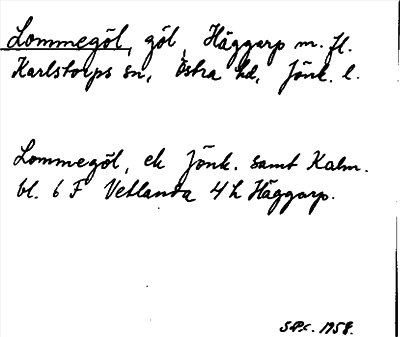 Lommegöl, göl, Häggarp m. fl.
Karlstorps sn, Östra hd, Jönk. l.
Lommegöl, ek Jönk. samt Kalm.
bl. 6 F Vetlanda 4 h Häggarp.
1958.